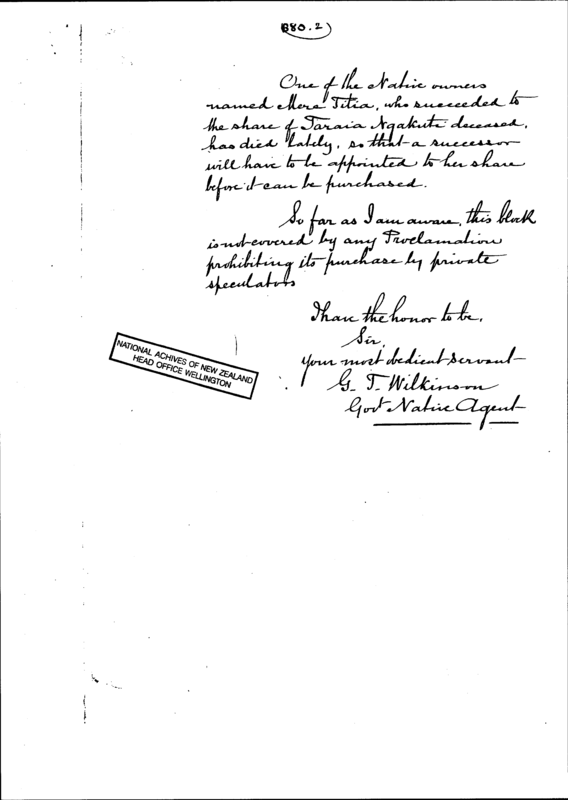 (B80.2)
One of the Native owners
named Mere Titia, who succeeded to
the share of Taraia Ngakuti deceased,
has died lately, so that a successor
will have to be appointed to her share
before it can be purchased.
So far as I am aware, this block
is not covered by any Proclamation
prohibiting its purchase by private
speculators
I have the honor to be,
Sir,
Your most obedient servant
G. T. Wilkinson
Govt Native Agent
NATIONAL ACHIVES OF NEW ZEALAND
HEAD OFFICE WELLINGTON